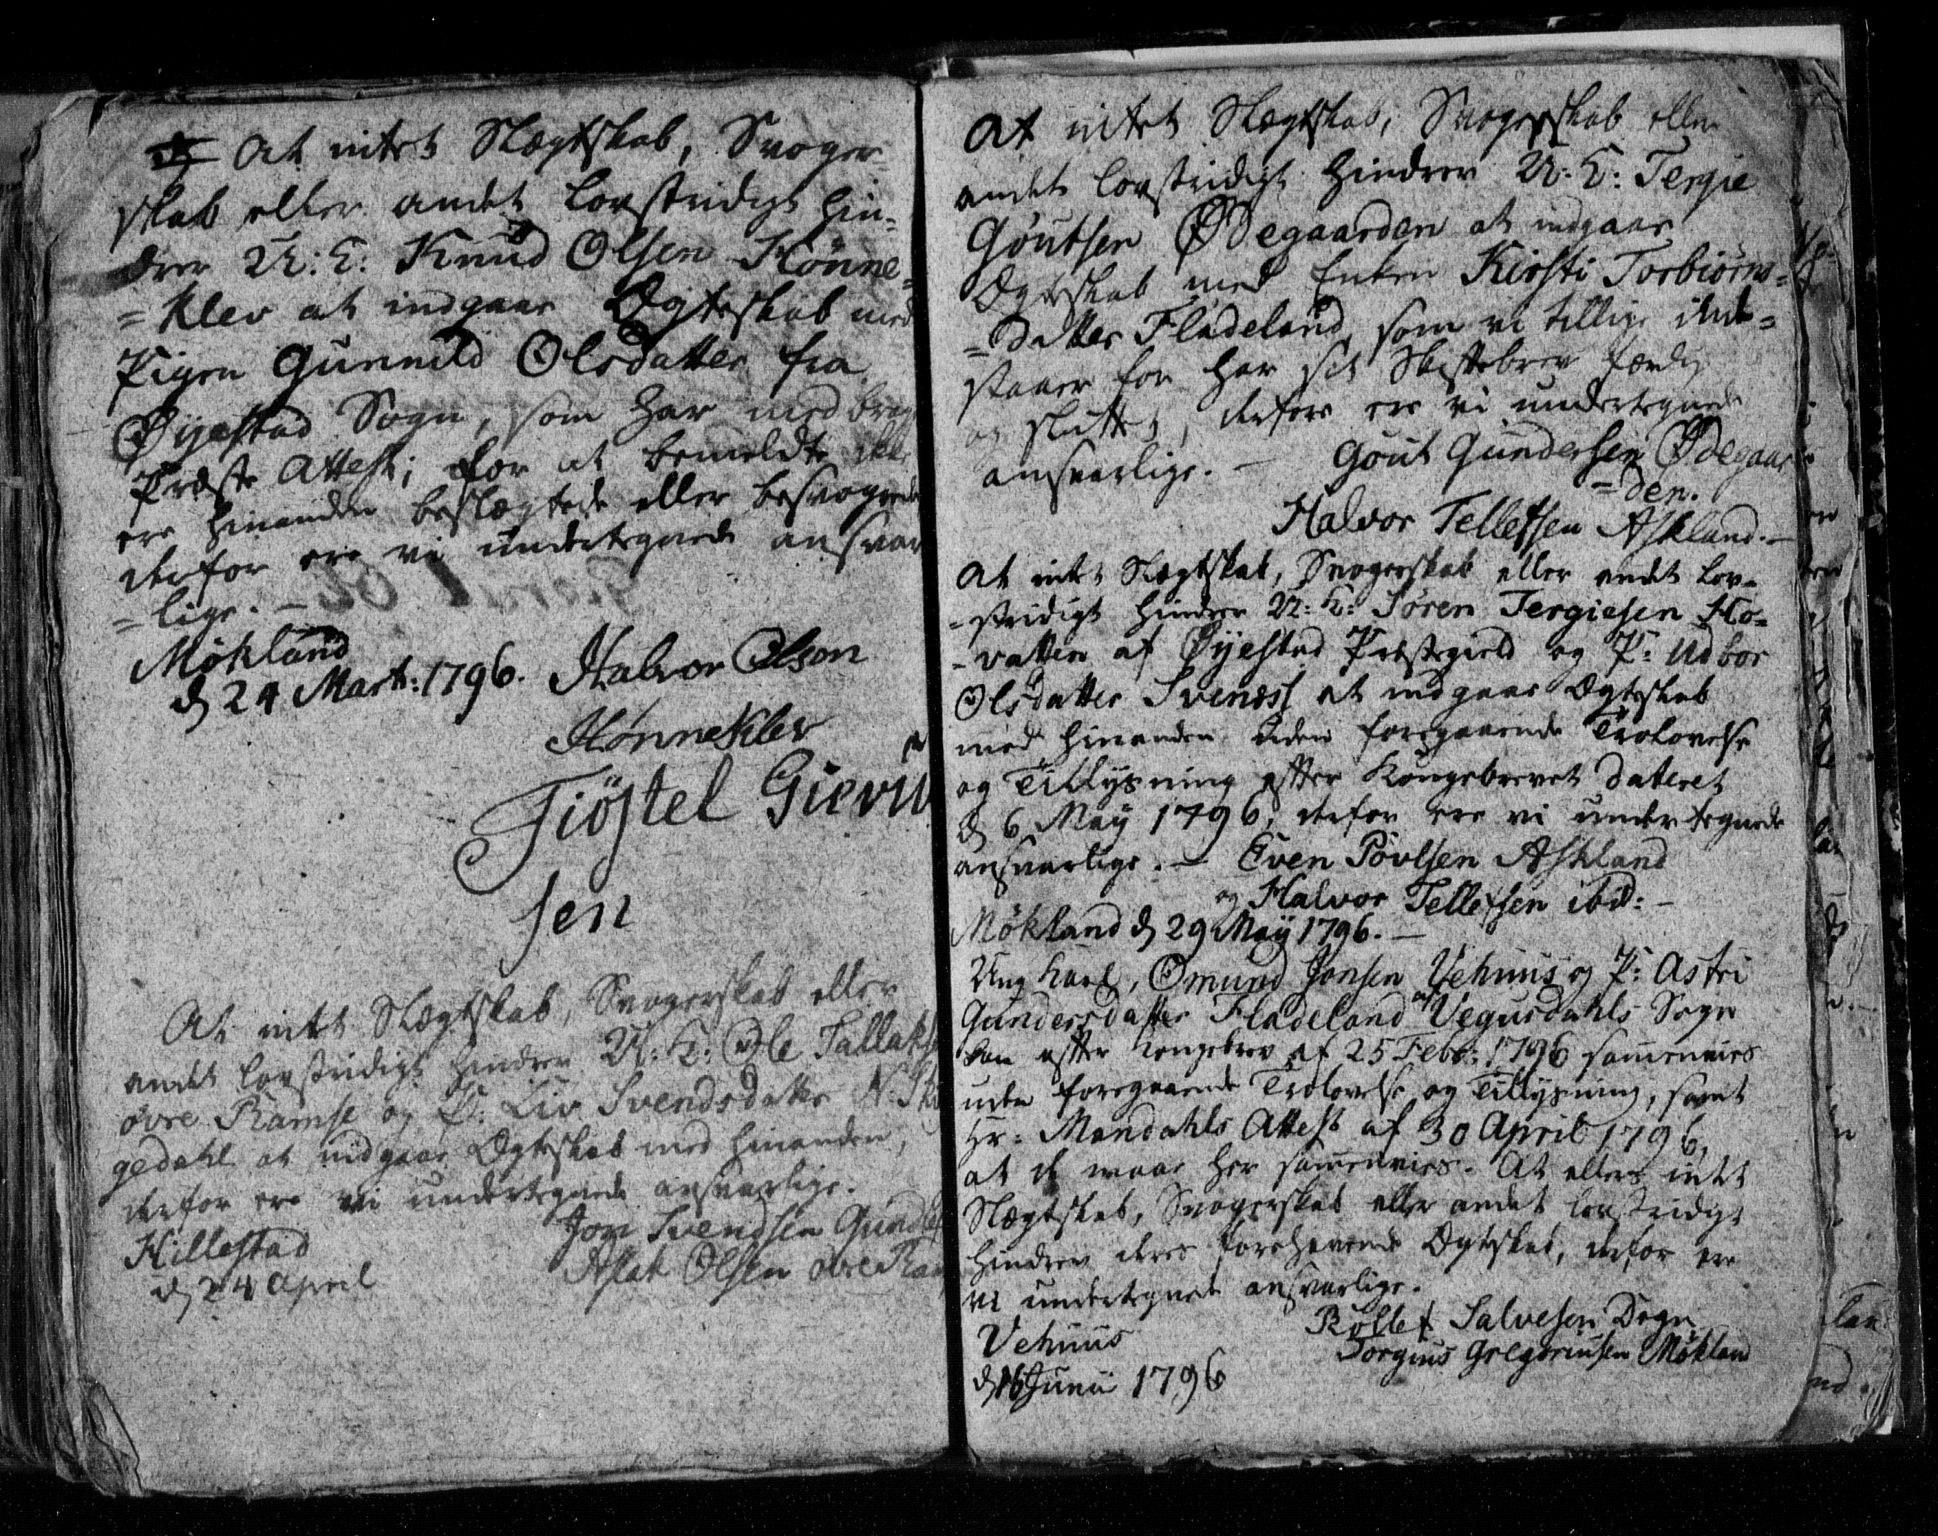 At intet Slægtskab, Svoger-
skab eller andet lovstridigt hin-
drer U: K: Knud Olsen Hønne-
= klev at indgaae Ægteskab med
Pigen Gunnild Olsdatter fra
Øyestad Sogn, som har medbragt
Præste Attest; for at bemeldte ikke
ere hinanden beslægtede eller besvogrede
derfor ere vi undertegnede ansvar
= lige. —
Møkland
d 24 Mart: 1796. Halvor Olson
Hønneklev
Tiøstel Giervu
sen
At intet Slægtskab, Svogerskab eller
andet lovstridigt hindrer U: K: Ole Tallaks
øvre Ramse og P: Liv Svendsdatter N: Sku
gedahl at indgaae Ægteskab med hinanden,
derfor ere vi undertegnede ansvarlige.
Jon Svendsen
Hillestad
Aslak Olsen øvre Ram
d 24 April
At intet Slægtskab, Svogerskab eller
andet lovstridigt hindrer U: K: Tergie
Goutsen Ødegaarden at indgaae
Ægteskab med Enken Kirsti Torbiørns =
= datter Fladeland, som vi tillige inde =
staaer for har sit Skiftebrev færdig
og sluttet, derfore ere vi undertegnede
ansvarlige. — Gout Gundersen Ødegaar
= den.
Halvor Tellefsen Askland. —
At intet Slægtskab, Svogerskab eller andet lov-
- stridigt hindrer U: K: Søren Tergiesen Ho-
- vatten af Øyestad Præstegield og P: Udbor
Olsdatter Svenæs at indgaae Ægteskab
med hinanden uden foregaaende Trolovelse
og Tillysning efter Kongebrevet dateret
d 6 May 1796, derfor ere vi undertegnede
ansvarlige. — Even Povlsen Askland
og Halvor Tellefsen ibid: —
Møkland d 29 May 1796. —
Ung karl, Omund Jonsen Vehuus og P: Astri
Gundersdatter Fladeland af Vegusdahls Sogn
kan efter kongebrev af 25 Febr: 1796 sammenvies
uden foregaaende Trolovelse og Tillysning, samt
Hr: Mandahls Attest af 30 April 1796,
at de maae her sammenvies. At ellers intet
Slægtskab, Svogerskab eller andet lovstridigt
hindrer deres forehavende Ægteskab, derfor ere
vi undertegnede ansvarlige.
Rollef Salvesen Degn
Vehuus
Torgius Gregoriusen Møkland
d 16 Junii 1796